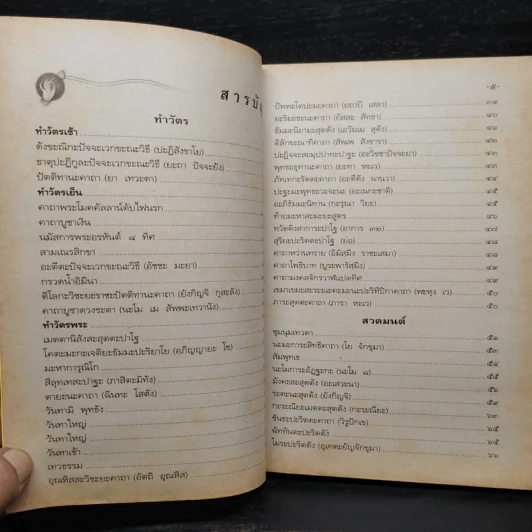 สารบั
ทำวัตร
ทำวัตรเช้า
ตังขะณิกะปัจจะเวกขะณะวิธี (ปะฏิสังขาโย)
ธาตุปะฏิกูละปัจจะเวกขะณะวิธี (ยะถา ปัจจะยัง)
ปัตติทานะคาถา (ยา เทวะตา)
ทำวัตรเย็น
คาถาพระโมคคัลลาน์ดับไฟนรก
คาถาบูชาเงิน
นมัสการพระอรหันต์ ๘ ทิศ
สามเณรสิกขา
อะตีตะปัจจะเวกขะณะวิธี (อัชชะ มะยา)
กรวดน้ำอิมินา
ติโลกะวิชะยะราชะปัตติทานะคาถา (ยังกิญจิ กุสะลัง)
คาถาบูชาดวงชะตา (นะโม เม สัพพะเทวานัง)
ทำวัตรพระ
เมตตานิสังสะสุตตะปาโฐ
โคตะมะกะเจติยะธัมมะปะริยาโย (อภิญญายะ โข)
มะหาการุณิโก
สีลุทเทสะปาฐะ (ภาสิตะมิทัง)
ตายะนะคาถา (ฉินทะ โสตัง)
วันทามิ พุทธัง
วันทาใหญ่
วันทาใหญ่
วันทาเช้า
เทวธรรม
อุณหิสสะวิชะยะคาถา (อัตถิ อุณหิส)
-๕-
ปัพพะโตปะมะคาถา (ยถาปิ เสลา) ๓๙
อะริยะธะนะคาถา (ยัสสะ สัทธา) ๔๐
ธัมมะนิยามะสุตตัง (เอวัมเม สุตัง) ๔๑
ติลักขะณาทิคาถา (สัพเพ สังขารา) ๔๒
ปะฏิจจะสะมุปปาทะปาฐะ (อะวิชชาปัจจะยา) ๔๓
พุทธะอุทานะคาถา (ยะทา หะเว) ๔๓
ภัทเทกะรัตตะคาถา (อะตีตัง นานวา) ๔๔
ปะฐะมะพุทธะวะจะนะ (อะเนกะชาติ) ๔๕
อะภิธัมมะนิทาน (กะรุณา วิยะ) ๔๕
ท้ายมะหาสะมะยะสูตร ๔๖
ทวัตติงสาการะปาโฐ (อาการ ๓๒) ๔๗
สุริยะปะริตตะปาโฐ (ย่อ) ๔๘
คาถาหว่านทราย (อิมัสมิง ราชะเสมา) ๔๘
คาถาโพธิบาท (บูระพารัสมิง) ๔๙
คาถามงคลจักรวาฬแปดทิศ ๔๙
เขมาเขมะสะระณะคะมะนะปะริทีปิกาคาถา (พะหุง เว) ๕๐
ภาระสุตตะคาถา (ภารา หะเว) ๕๐
สวดมนต์
ชุมนุมเทวดา ๕๑
นะมะการะสิทธิคาถา (โย จักขุมา) ๕๑
สัมพุทเธ
นะโมการะอัฏฐะกะ (นะโม ๘)
มังคะละสุตตัง (อะเสวะนา)
ระตะนะสุตตัง (ยังกิญจิ)
กะระณียะเมตตะสุตตัง (กะระณียะ)
ขันธะปะริตตะคาถา (วิรูปักเข) ๖๓
ฉัททันตะปะริตตัง ๖๕
โมระปะริตตัง (อุเทตะยัญจักขุมา) ๖๖